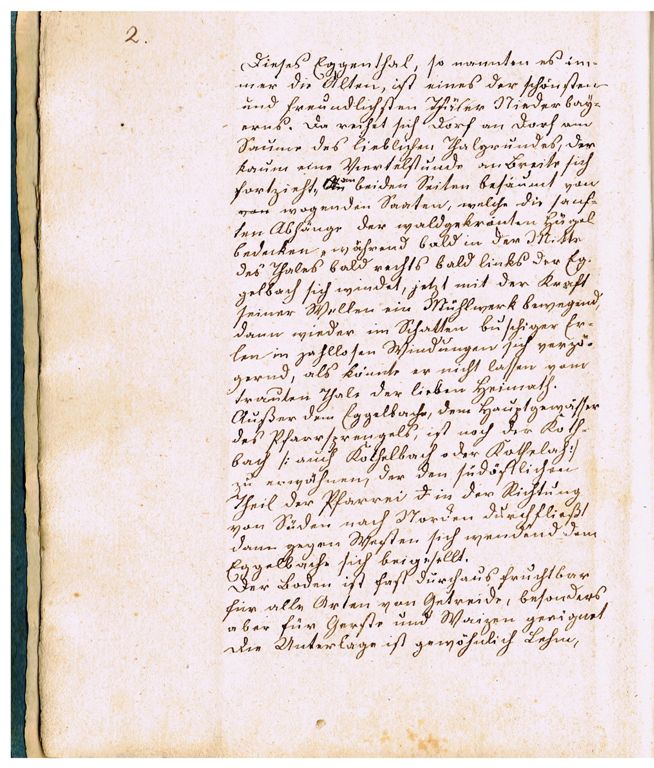 2.
Dieses Eggenthal, so nannten es im-
mer die Alten, ist eines der schönsten
und freundlichsten Thäler Niederbay-
erns. Da reihet sich Dorf an Dorf am
Saume des lieblichen Thalgrundes, der
kaum eine Viertelstunde an Breite sich
fortzieht, an beiden Seiten besäumt von
von wogenden Saaten, welche die sanf-
ten Abhänge der waldgekrönten Hügel
bedecken, während bald in der Mitte
des Thales bald rechts bald links der Eg-
gelbach sich windet, jetzt mit der Kraft
seiner Wellen ein Mühlwerk bewegend,
dann wieder im Schatten buschiger Er-
len in zahllosen Windungen sich verzö-
gernd, als könnte er nicht lassen vom
trauten Thale der lieben Heimath.
Außer dem Eggelbache, dem Hauptgewässer
des Pfarrsprengels, ist noch der Koth-
bach /: auch Köthelbach oder Kothelach :/
zu erwähnen, der den südöstlichen
Theil der Pfarrei in der Richtung
von Süden nach Norden durchfließt
dann gegen Westen sich wendend dem
Eggelbache sich beigesellt.
Der Boden ist fast durchaus fruchtbar
für alle Arten von Getreide, besonders
aber für Gerste und Waizen geeignet
Die Unterlage ist gewöhnlich Lehm,